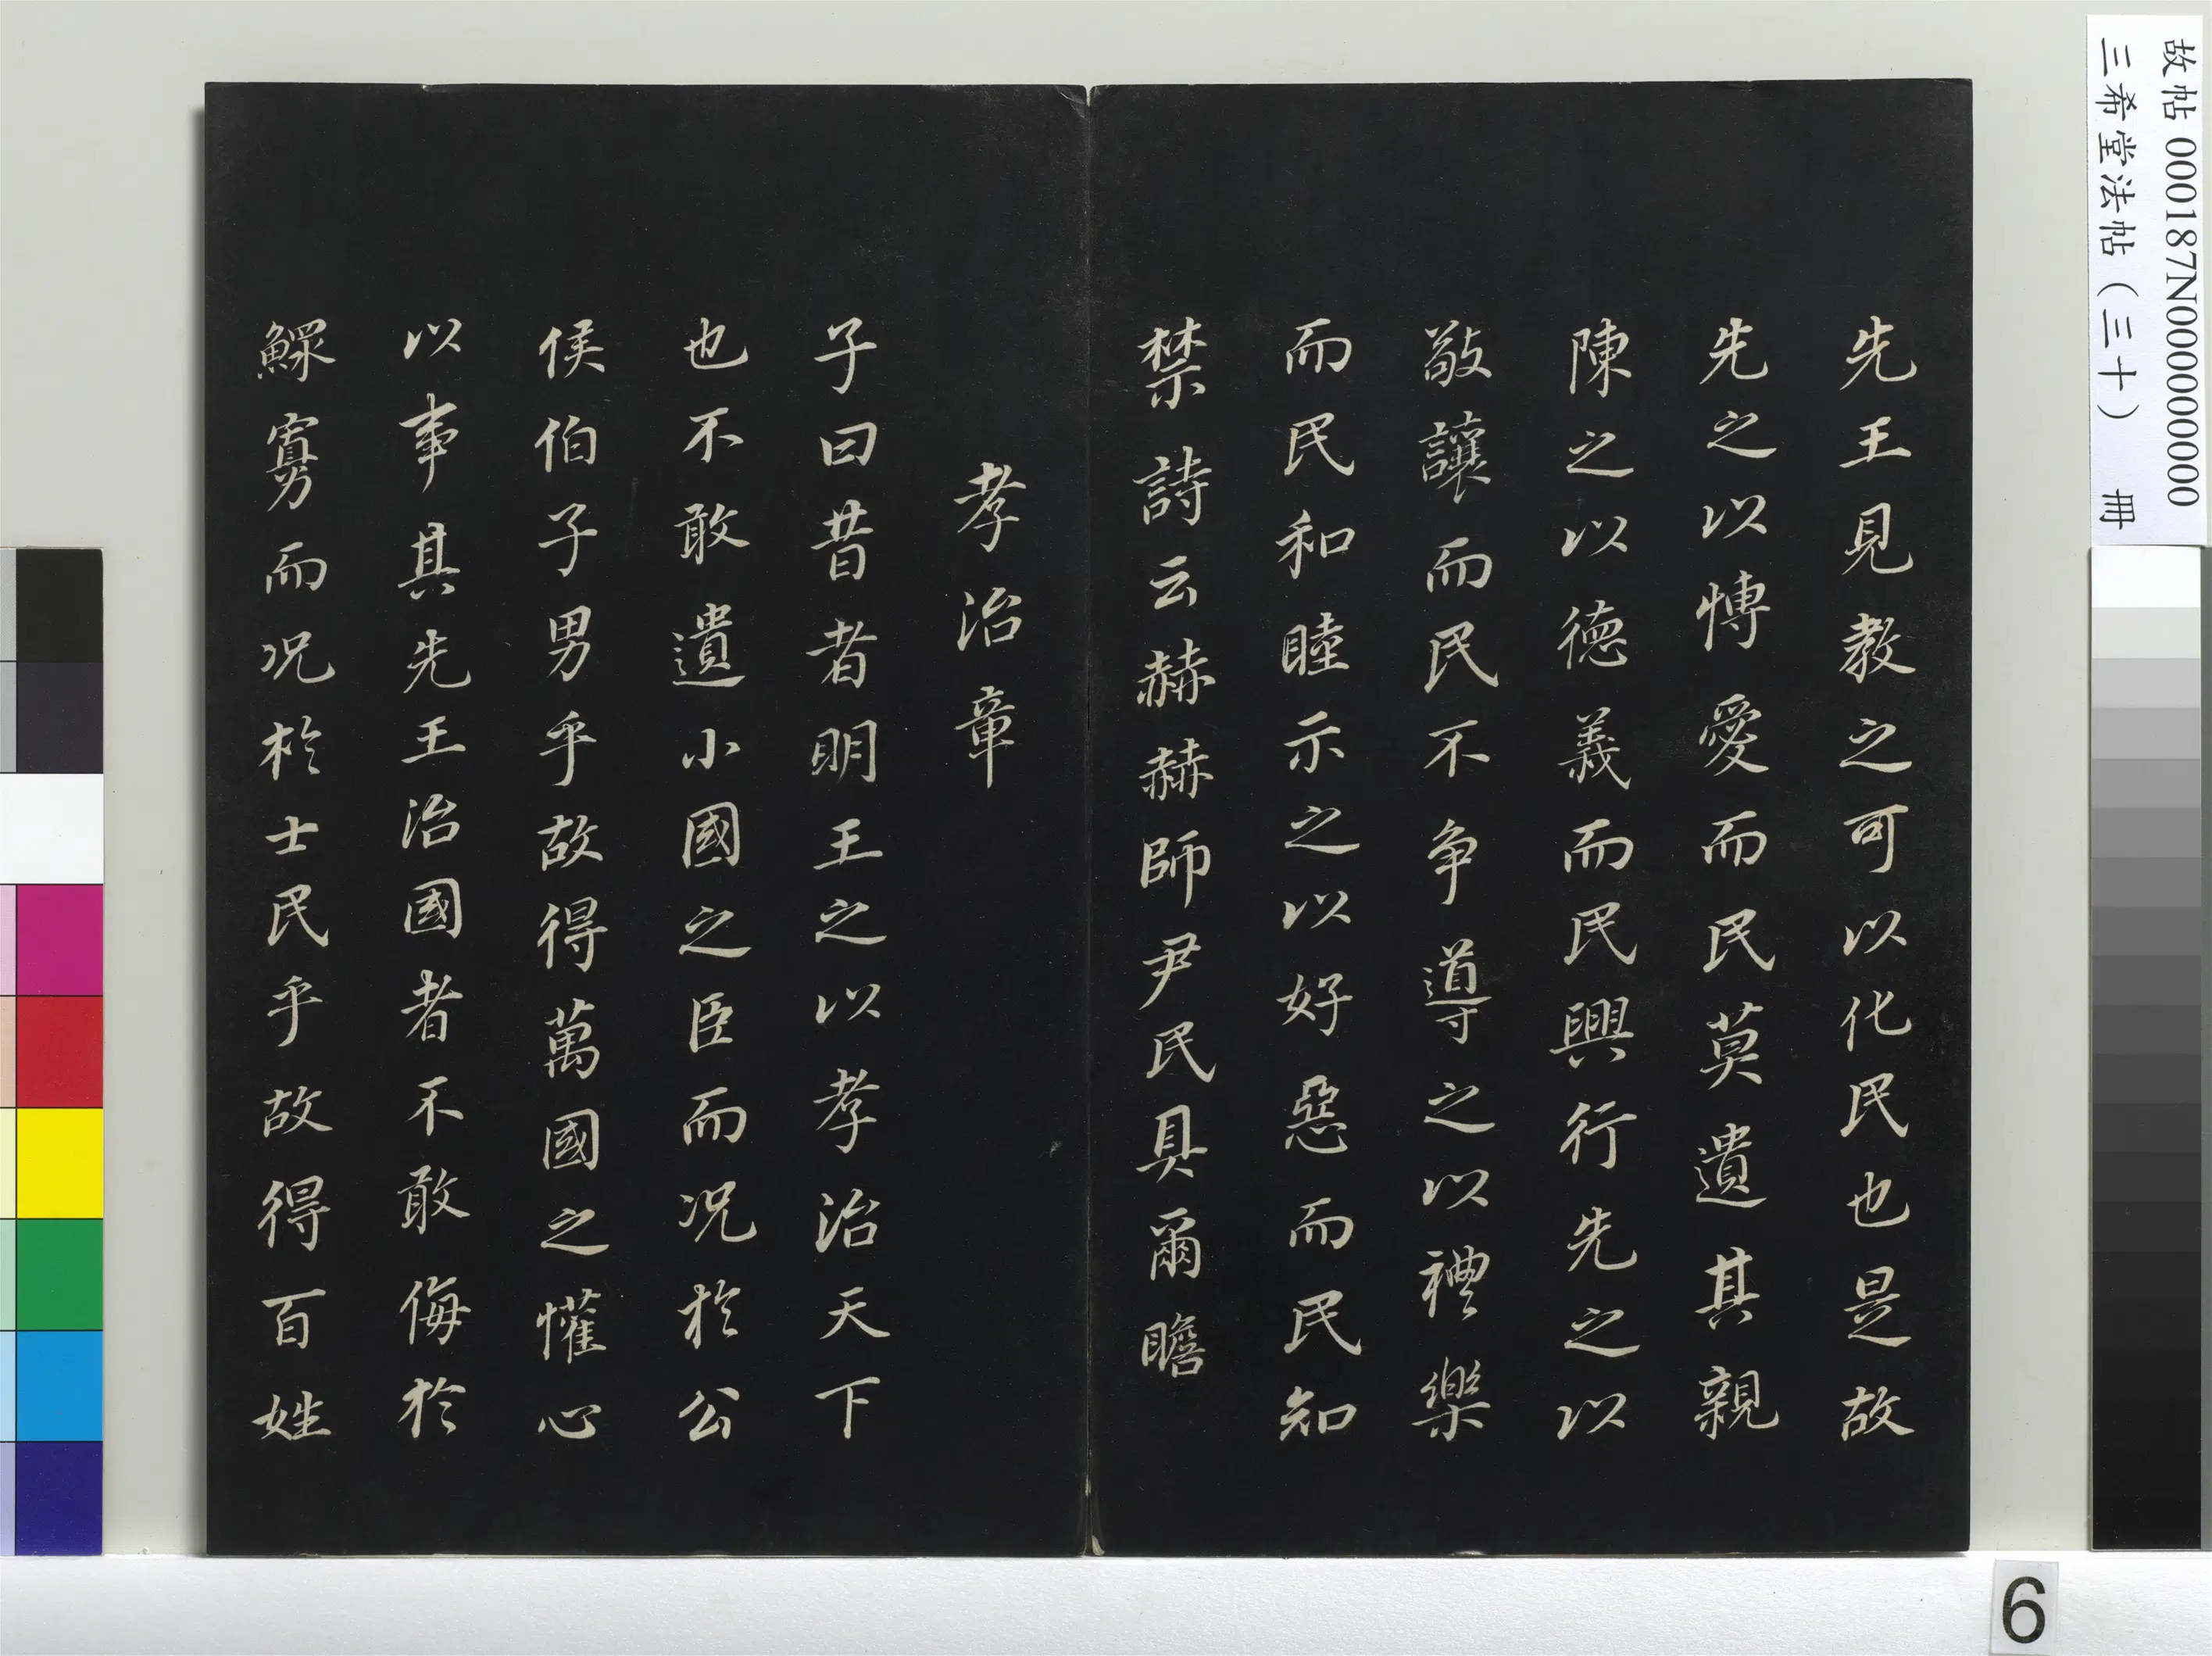 故帖 000187N000000000
三希堂法帖（三十） 冊
先王見教之可以化民也是故
先之以博愛而民莫遺其親
陳之以德義而民興行先之以
敬讓而民不争導之以禮樂
而民和睦示之以好惡而民知
禁詩云赫赫師尹民具爾瞻
孝治章
子曰昔者明王之以孝治天下
也不敢遺小國之臣而况於公
侯伯子男乎故得萬國之懽心
以事其先王治國者不敢侮於
鰥寡而况於士民乎故得百姓
6